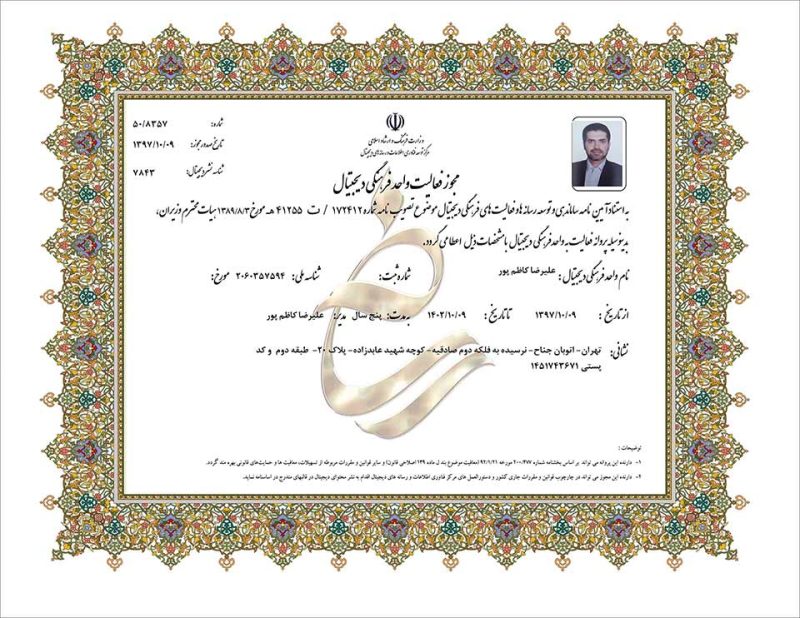 شماره: ۵۰/۸۳۵۷
تاریخ صدور مجوز: ۱۳۹۷/۱۰/۰۹
شناسه نشر دیجیتال: ۷۸۴۳
وزارت فرهنگ و ارشاد اسلامی
مرکز توسعه فناوری اطلاعات و رسانه های دیجیتال
مجوز فعالیت واحد فرهنگی دیجیتال
به استناد آیین نامه ساماندهی و توسعه رسانه ها و فعالیت های فرهنگی دیجیتال موضوع تصویب نامه شماره ۱۷۲۴۱۲ / ت ۴۱۲۵۵ هـ مورخ ۱۳۸۹/۸/۳ هیات محترم وزیران،
بدینوسیله پروانه فعالیت به واحد فرهنگی دیجیتال با مشخصات ذیل اعطا می گردد.
نام واحد فرهنگی دیجیتال: علیرضا کاظم پور شماره ثبت: شناسه ملی: ۲۰۶۰۳۵۷۵۹۴ مورخ:
از تاریخ: ۱۳۹۷/۱۰/۰۹ تا تاریخ: ۱۴۰۲/۱۰/۰۹ به مدت: پنج سال مدیر: علیرضا کاظم پور
نشانی: تهران- اتوبان جناح- نرسیده به فلکه دوم صادقیه- کوچه شهید عابدزاده- پلاک ۲۰- طبقه دوم و کد
پستی ۱۴۵۱۷۴۳۶۷۱
توضیحات:
۱- دارنده این پروانه می تواند بر اساس بخشنامه شماره ۲۰۰/۴۷۷ مورخه ۹۲/۱/۲۱ (معافیت موضوع بند ل ماده ۱۳۹ اصلاحی قانون) و سایر قوانین و مقررات مربوطه از تسهیلات، معافیت ها و حمایت‌های قانونی بهره مند گردد.
۲- دارنده این مجوز می تواند در چارچوب قوانین و مقررات جاری کشور و دستورالعمل های مرکز فناوری اطلاعات و رسانه های دیجیتال اقدام به نشر محتوای دیجیتال در قالبهای مندرج در اساسنامه نماید.